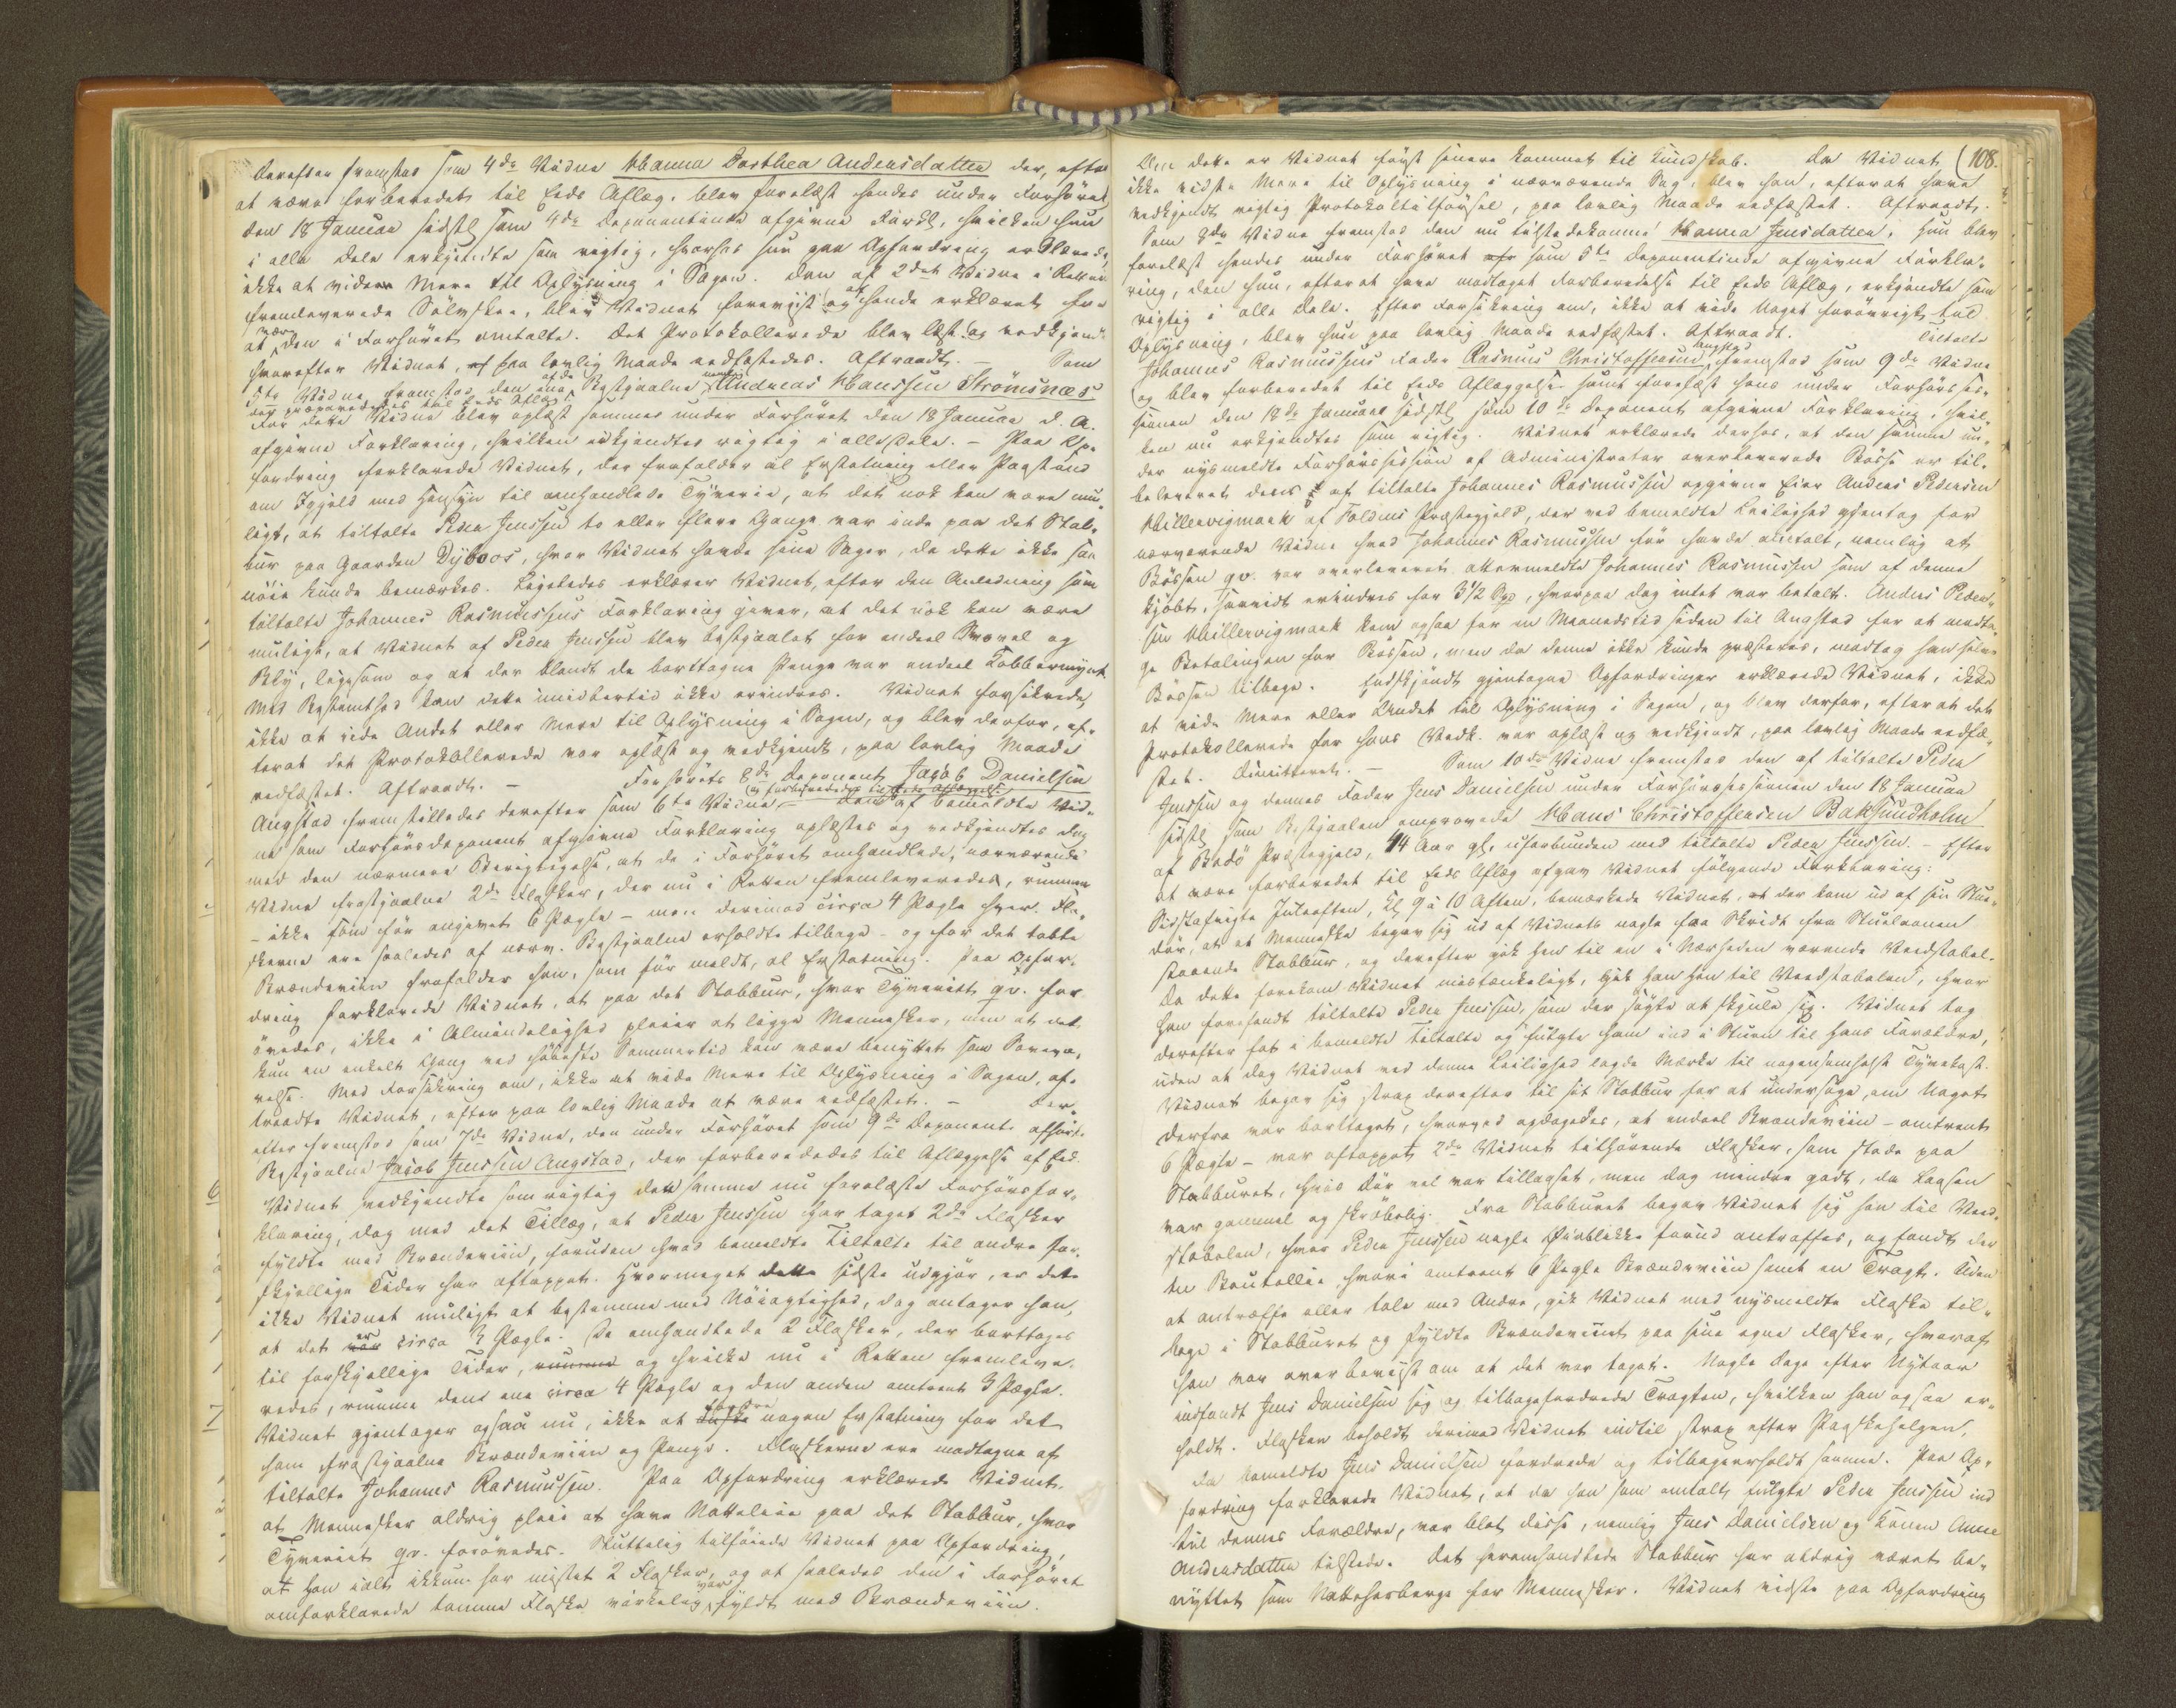 Derefter fremstod som 4de Vidne Hanna Dorthea Andersdatter der, efter
at være forberedet til Eeds Aflæg, blev forelæst hendes under Forhöret
den 18 Januar sidstl. som 4de Deponentinde afgivne Forkl., hvilken hun
i alle Dele erkjendte som rigtig, hvorhos hun paa Opfordring erklærede,
ikke at vide Mere til Oplysning i Sagen. Den af 2det Vidne i Retten
fremleverede Sölvskee, blev Vidnet foreviist og af hende erklæret for
at være den i Forhöret omtalte. Det Protokollerede blev læst og vedkjendt
hvorefter Vidnet, paa lovlig Maade eedfæstedes. Aftraadt. – Som
5te Vidne fremstod den af de Bestjaalne Andreas Hanssen Strömsnæs
der præparerededes til Eeds Aflæg.
For dette Vidne blev oplæst sammes under Forhöret den 18 Januar d. A.
afgivne Forklaring, hvilken erkjendtes rigtig i alle Dele. – Paa Op-
fordring forklarede Vidnet, der frafalder al Erstatning eller Paastand
om Igjeld med Hensyn til omhandlede Tyverie, at det nok kan være mu-
ligt, at tiltalte Peder Jenssen to eller flere Gange var inde paa det Stab-
bur paa Gaarden Dybvos, hvor Vidnet havde sine Sager, da dette ikke saa
nöie kunde bemærkes. Ligeledes erklærer Vidnet, efter den Anledning som
tiltalte Johannes Rasmussens Forklaring giver, at det nok kan være
muligt, at Vidnet af Peder Jenssen blev bestjaalet for endeel Svovel og
Bly, ligesom og at der blandt de borttagne Penge var endeel Kobbermynt.
Med Bestemthed kan dette imidlertid ikke erindres. Vidnet forsikrede
ikke at vide Andet eller Mere til Oplysning i Sagen, og blev derfor, ef-
terat det Protokollerede var oplæst og vedkjendt, paa lovlig Maade
eedfæstet. Aftraadt. – Forhörets 8de Deponent Jacob Danielsen
Angstad fremstilledes derefter som 6te Vidne, og forberededes til Eeds Aflæggelse – Den af bemeldte Vid-
ne som Forhörsdeponent afgivne Forklaring oplæstes og vedkjendtes dog
med den nærmere Berigtigelse, at de i Forhöret omhandlede, nærværende
Vidne frastjaalne 2de Flasker, der nu i Retten fremleveredes, rumme
– ikke som för angivet 6 Pægle – men derimod circa 4 Pægle hver. Fla-
skerne ere saaledes af nærv. Bestjaalne erholdte tilbage – og for det tabte
Brændeviin frafalder han, som för meldt, al Erstatning. Paa Opfor-
dring forklarede Vidnet, at paa det Stabbur, hvor Tyveriet qv. for
övedes, ikke i Almindelighed pleier at ligge Mennesker, men at det
kun en enkelt Gang ved höieste Sommertid kan være benyttet som Soveva-
relse. Med Forsikring om, ikke at vide Mere til Oplysning i Sagen, af-
traadte Vidnet, efter paa lovlig Maade at være eedfæstet. – Der-
efter fremstod som 7de Vidne, den under Forhöret som 9de Deponent afhörte
Bestjaalne Jacob Jenssen Angstad, der forberededes til Aflæggelse af Eed.
Vidnet vedkjendte som rigtig den samme nu forelæste Forhörsfor-
klaring, dog med det Tillæg, at Peder Jenssen har taget 2de Flasker
fyldte med Brændeviin, foruden hvad bemeldte Tiltalte til andre for-
skjellige Tider har aftappet. Hvormeget dette sidste udgjör, er det
ikke Vidnet muligt at bestemme med Nöiagtighed, dog antager han,
at det er circa 3 Pægle. De omhandlede 2 Flasker, der borttoges
til forskjellige Tider, og hvilke nu i Retten fremleve-
redes, rumme den ene circa 4 Pægle og den anden omtrent 3 Pægle.
Vidnet gjentager ogsaa nu, ikke at fordre nogen Erstatning for det
ham frastjaalne Brændeviin og Penge. Flaskerne ere modtagne af
tiltalte Johannes Rasmussen. Paa Opfordring erklærede Vidnet,
at Mennesker aldrig pleie at have Natteleie paa det Stabbur, hvor
Tyveriet qv. forövedes. Sluttelig tilföiede Vidnet paa Opfordring,
at han ialt ikkun har mistet 2 Flasker, og at saaledes den i Forhöret
omforklarede tomme Flaske virkelig var fyldt med Brændeviin.
108.
Om dette er Vidnet först senere kommet til Kundskab. Da Vidnet
ikke vidste Mere til Oplysning i nærværende Sag, blev han, efterat have
vedkjendt rigtig Protokoltilförsel, paa lovlig Maade eedfæstet. Aftraadt.
Som 8de Vidne fremstod den nu tilstedekomne Hanna Jensdatter. Hun blev
forelæst hendes under Forhöret som 5te Deponentinde afgivne Forkla-
ring, den hun, efterat have modtaget Forberedelse til Eeds Aflæg, erkjendte som
rigtig i alle Dele. Efter Forsikring om, ikke at vide Noget forövrigt til
Oplysning, blev hun paa lovlig Maade eedfæstet. Aftraadt. Tiltalte
Johannes Rasmussens Fader Rasmus Christoffersen Angstad fremstod som 9de Vidne
og blev forberedet til Eeds Aflæggelse samt forelæst hans under Forhörsses-
sionen den 18de Januar sidstl. som 10de Deponent afgivne Forklaring, hvil-
ken nu erkjendtes som rigtig. Vidnet erklærede derhos, at den samme un-
der nysmeldte Forhörssession af Administrator overleverede Bösse er til-
beleveret dens af tiltalte Johannes Rasmussen opgivne Eier Anders Pedersen
Hillervigmark af Foldens Præstegjeld, der ved bemeldte Leilighed gjentog for
nærværende Vidne hvad Johannes Rasmussen för havde omtalt, nemlig at
Bössen qv. var overleveret ommeldte Johannes Rasmussen som af denne
kjöbt, saavidt erindres for 3 1/2 Spd, hvorpaa dog intet var betalt. Anders Peder-
sen Hillervigmark kom ogsaa for en Maanedstid siden til Angstad for at modta-
ge Betalingen for Bössen, men da denne ikke kunde præsteres, modtog han selve
Bössen tilbage. Endskjöndt gjentagne Opfordringer erklærede Vidnet, ikke
at vide Mere eller Andet til Oplysning i Sagen, og blev derfor, efterat det
Protokollerede for hans Vedk. var oplæst og vedkjendt, paa lovlig Maade eedfæ-
stet. Dimitteret. – Som 10de Vidne fremstod den af tiltalte Peder
Jenssen og dennes Fader Jens Danielsen under Forhörssessionen den 18 Januar
sidstl. som Bestjaalen omprovede Hans Christoffersen Baksundholm
af Bodö Præstegjeld, 44 Aar gl., uforbunden med tiltalte Peder Jenssen. – Efter
at være forberedet til Eeds Aflæg afgav Vidnet fölgende Forklaring:
Sidstafvigte Juleaften, Kl. 9 à 10 Aften, bemærkede Vidnet, at der kom ud af sin Stue-
dör, at et Menneske begav sig ud af Vidnets nogle faa Skridt fra Stuelaanen
staaende Stabbur, og derefter gik hen til en i Nærheden værende Veedstabel.
Da dette forekom Vidnet mistænkeligt, gik han hen til Veedstabelen, hvor
han forefandt tiltalte Peder Jenssen, som der sögte at skjule sig. Vidnet tog
derefter fat i bemeldte Tiltalte og fulgte ham ind i Stuen til hans Forældre,
uden at dog Vidnet ved denne Leilighed lagde Mærke til nogensomhelst Tyvekost.
Vidnet begav sig strax derefter til sit Stabbur for at undersöge, om Noget
derfra var borttaget, hvorved opdagedes, at endeel Brændeviin – omtrent
6 Pægle – var aftappet 2de Vidnet tilhörende Flasker, som stode paa
Stabburet, hvis Dör vel var tillaaset, men dog mindre godt, da Laasen
var gammel og skröbelig. Fra Stabburet begav Vidnet sig hen til Veed-
stabelen, hvor Peder Jenssen nogle Öieblikke forud antraffes, og fandt der
en Bouteille, hvori omtrent 6 Pægle Brændeviin samt en Tragt. Uden
at antræffe eller tale med Andre, gik Vidnet med nysmeldte Flaske til-
bage i Stabburet og fyldte Brændevinet paa sine egne Flasker, hvoraf
han var overbeviist om at det var taget. Nogle Dage efter Nytaar
indfandt Jens Danielsen sig og tilbagefordrede Tragten, hvilken han ogsaa er-
holdt. Flasken beholdt derimod Vidnet indtil strax efter Paaskehelgen,
da bemeldte Jens Danielsen fordrede og tilbageerholdt samme. Paa Op-
fordring forklarede Vidnet, at da han som omtalt fulgte Peder Jenssen ind
til dennes Forældre, var blot disse, nemlig Jens Danielsen og Konen Anne
Andersdatter tilstede. Det heromhandlede Stabbur har aldrig været be-
nyttet som Natteherberge for Mennesker. Vidnet vidste paa Opfordring